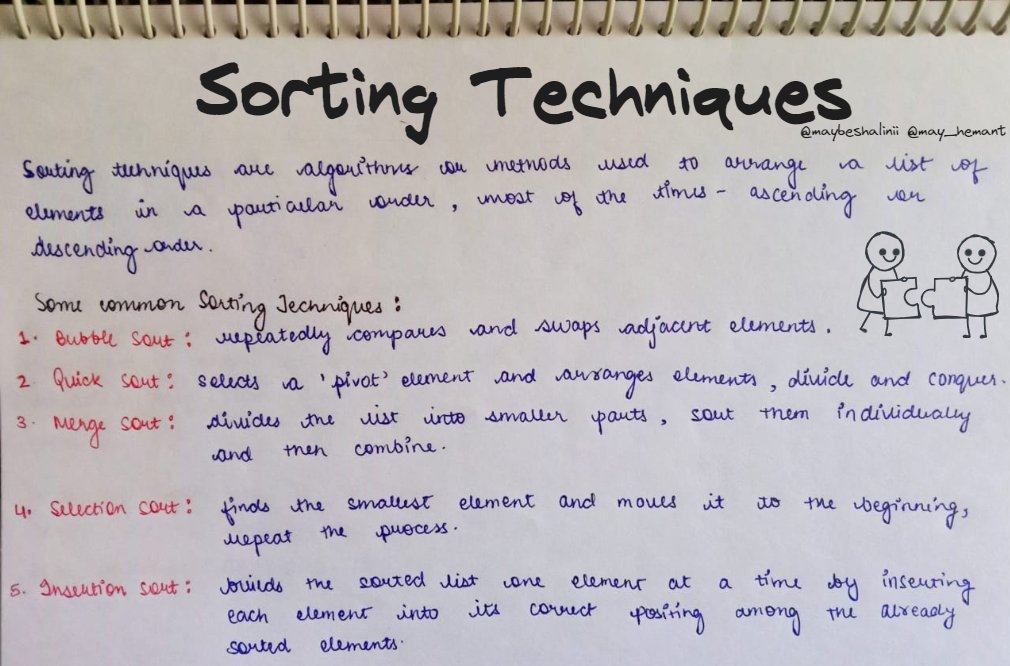 Sorting Techniques
@maybeshalinii @may_hemant
Sorting techniques are algorithms or methods used to arrange a list of
elements in a particular order, most of the times - ascending or
descending order.
Some common Sorting Techniques :
1. Bubble sort : repeatedly compares and swaps adjacent elements.
2. Quick sort : selects a 'pivot' element and arranges elements, divide and conquer.
3. Merge sort : divides the list into smaller parts, sort them individually
and then combine.
4. Selection sort : finds the smallest element and moves it to the beginning,
repeat the process.
5. Insertion sort : builds the sorted list one element at a time by inserting
each element into its correct positing among the already
sorted elements.